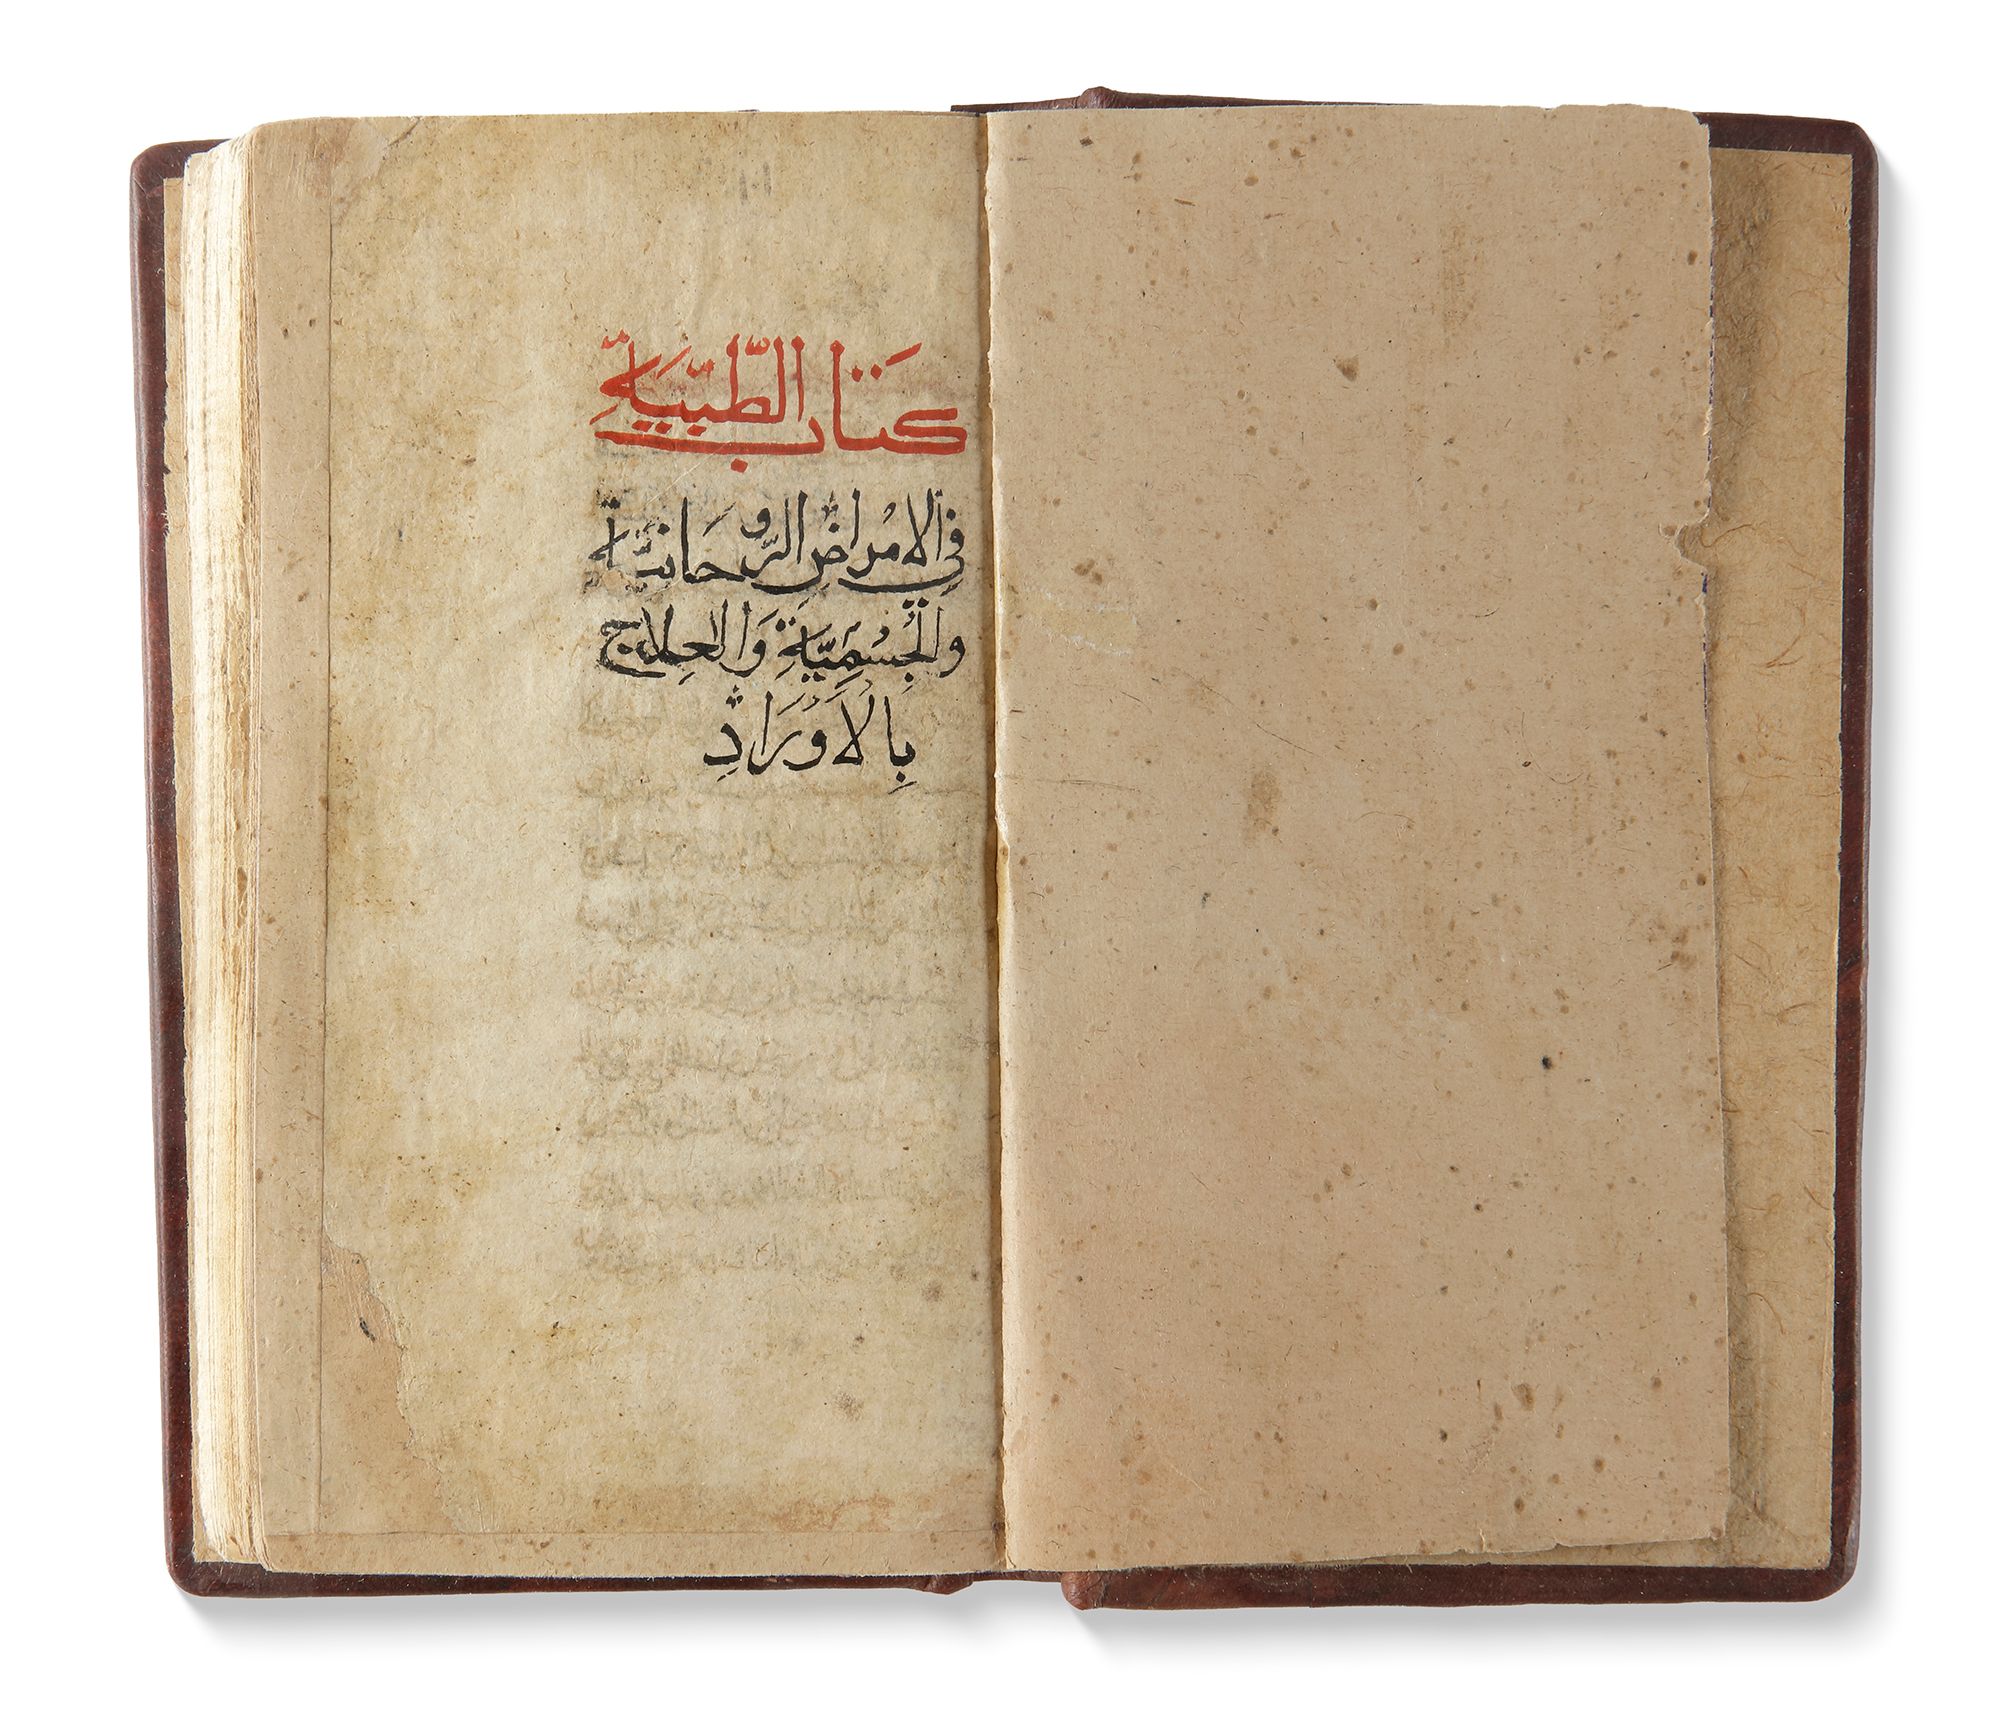 كتاب الطبية
في الامراض الروحانية
والجسمية والعلاج
بالاوراد